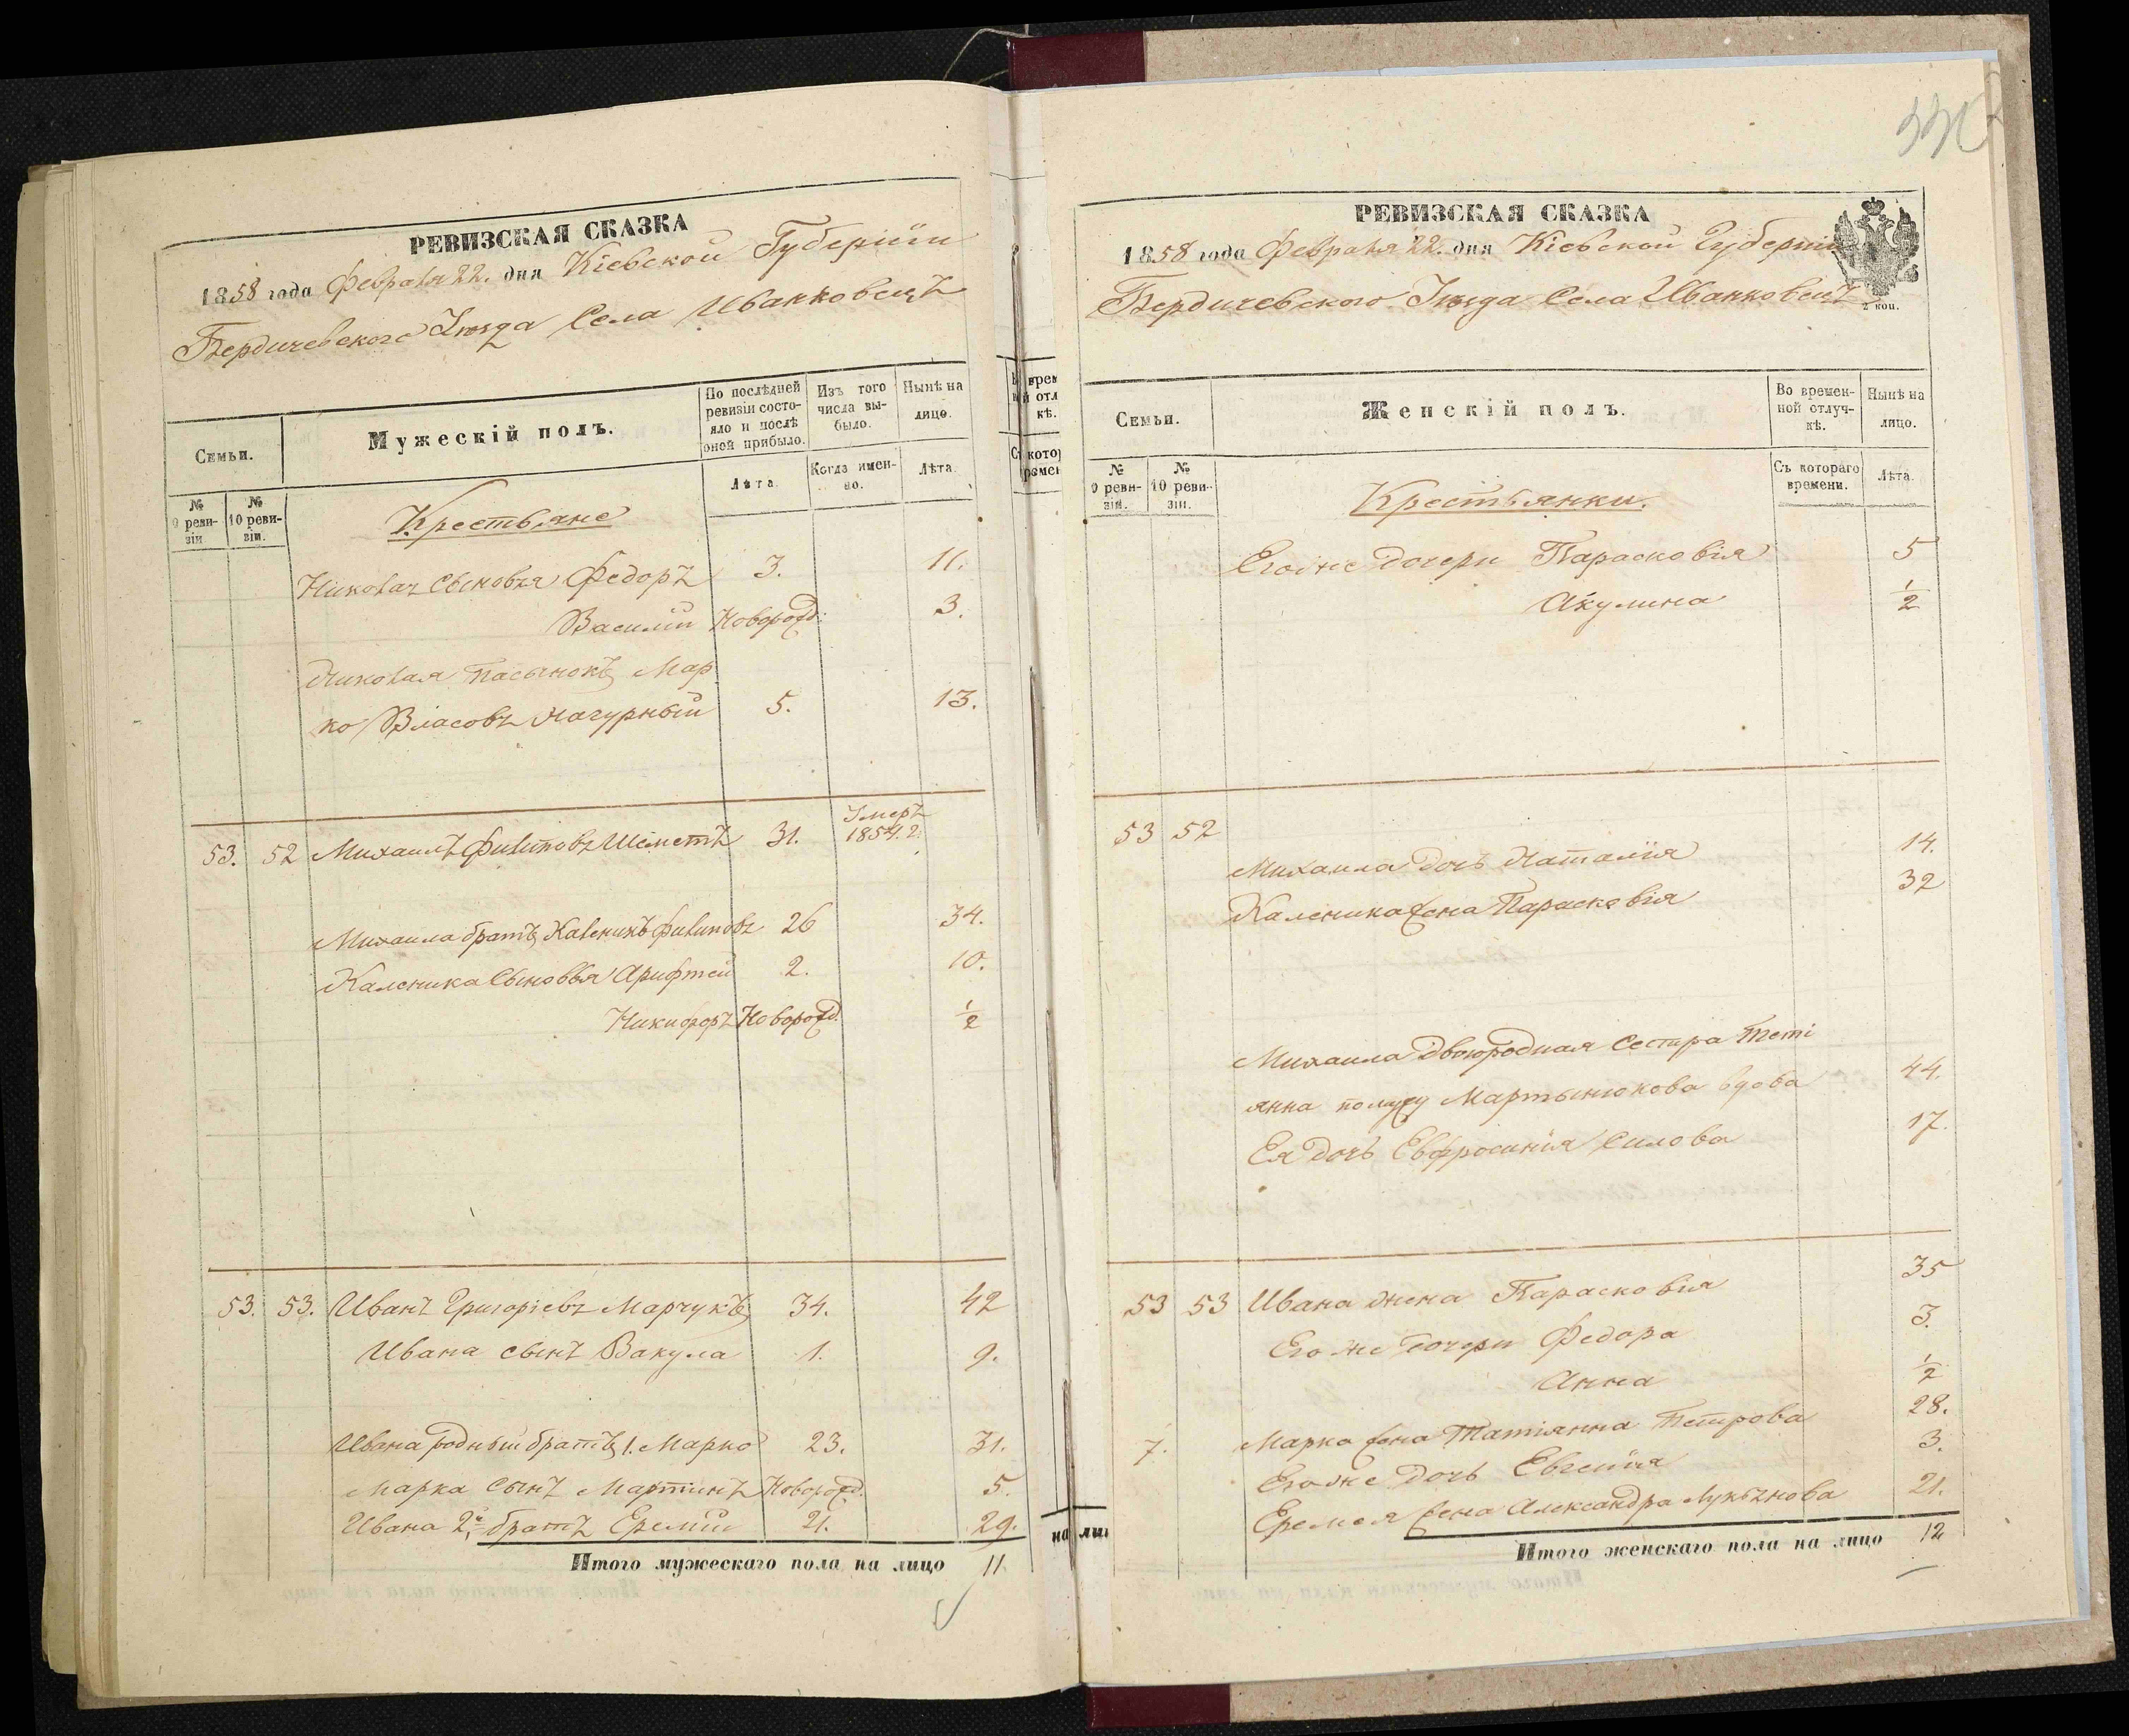 РЕВИЗСКАЯ СКАЗКА
1858 года Февраля 22. дня Кіевской Губерніи
Бердичевского Уѣзда Села Иванковецъ
Семьи.
Мужескій полъ.
По послѣдней ревизіи состояло и послѣ оной прибыло.
Изъ того числа выбыло.
Нынѣ на лицо.
№ 9 ревизіи
№ 10 ревизіи.
Лѣта.
Когда именно.
Лѣта.
Крестьяне
Николая Сыновья Федоръ 3. 11.
Василій Новорожд. 3.
Николая Пасынокъ Мар
ко Власовъ Качурный 5. 13.
53. 52 Михаилъ Филиповъ Шеметъ 31. Умеръ 1854. г.
Михаила братъ Каленикъ Филиповъ 26 34.
Каленика Сыновья Арифтей 2. 10.
Никифоръ Новорожд. 1/2
53. 53. Иванъ Григоріевъ Марчукъ 34. 42
Ивана сынъ Вакула 1. 9.
Ивана родный братъ 1. Марко 23. 31.
Марка сынъ Мартинъ Новорожд. 5.
Ивана 2й братъ Еремій 21. 29.
Итого мужескаго пола на лицо 11.
РЕВИЗСКАЯ СКАЗКА
1858 года Февраля 22. дня Кіевской Губерніи
Бердичевского Уѣзда Села Иванковецъ
2 коп.
Семьи.
Женскій полъ.
Во временной отлучкѣ.
Нынѣ на лицо.
№ 9 ревизіи.
№ 10 ревизіи.
Съ котораго времени.
Лѣта.
Крестьянки.
Его же дочери Парасковія 5
Акулина 1/2
53 52
Михаила дочь Наталія 14.
Каленика жена Парасковія 32
Михаила двоюродная Сестра Теті
янна по мужу Мартынюкова вдова 44.
Ея дочь Евфросинія Силова 17.
53 53 Ивана жена Парасковія 35
Его же дочери Федора 3.
Анна 1/2
7. Марка жена Татіянна Петрова 28.
Его же дочь Евгенія 3.
Еремея жена Александра Лукьянова 21.
Итого женскаго пола на лицо 12